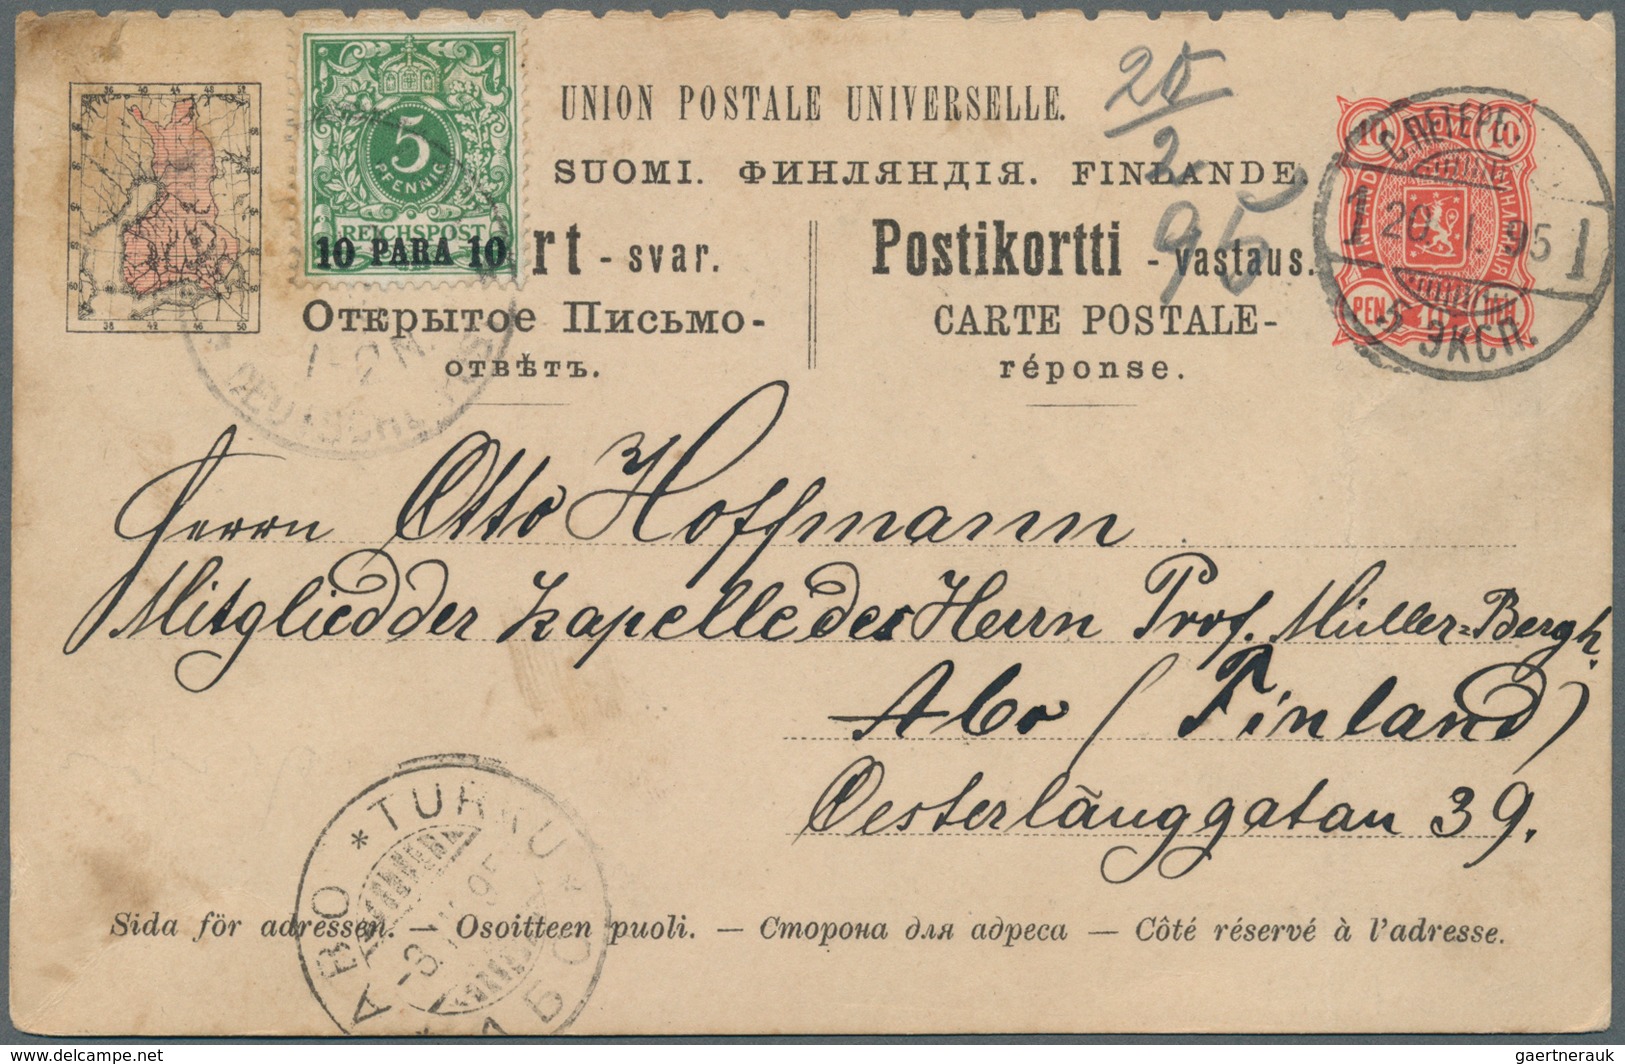 UNION POSTALE UNIVERSELLE.
25
2
95
SUOMI. ФИНЛЯНДІЯ. FINLANDE.
5
PFENNIG
REICHSPOST
10 PARA 10
rt - svar.
Postikortti - vastaus.
Открытое Письмо-
CARTE POSTALE-
отвѣтъ.
réponse.
10 10
PEN
С.ПЕТЕРБ.
1 20 95 1
5 ЭКСП.
Herrn Otto Hoffmann
Mitglied der Kapelle des Herrn Prof. Müller-Bergh.
Abo (Finland)
Oesterlånggatan 39.
ABO * TURKU * АБО
Sida för adressen. — Osoitteen puoli. — Сторона для адреса — Côté réservé à l'adresse.
gaertnerauk